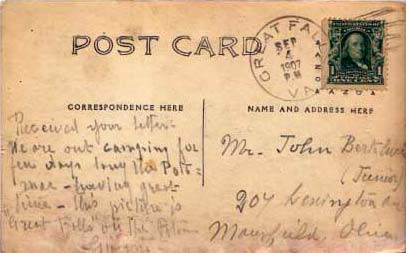 POST CARD
GREAT FALLS
SEP
4
1907
PM
VA
CORRESPONDENCE HERE
NAME AND ADDRESS HERE
Received your letter
We are out camping for
few days long the Poto-
mac - having great
time - this picture is
"Great Falls" on the Potom
Mr. John
(Junior)
204 Lexington Av
Mansfield, Ohio